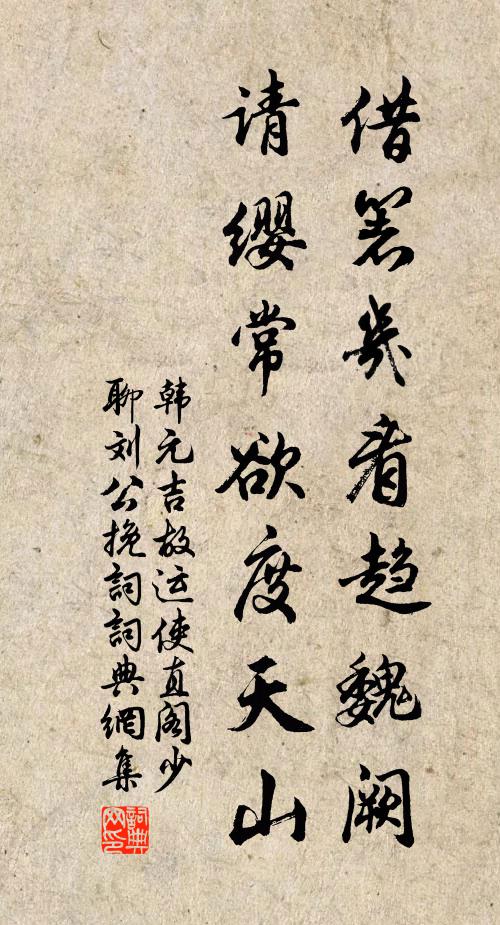 借箸几看趋魏阙
请缨常欲度天山
韩元吉故运使直阁少
聊刘公挽詞詞典網集
詞典网印